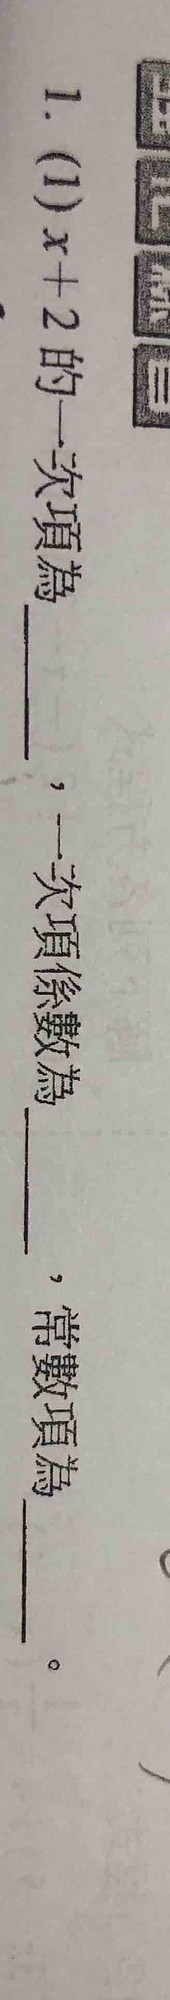 1. (1) x+2 的一次項為______，一次項係數為______，常數項為______。